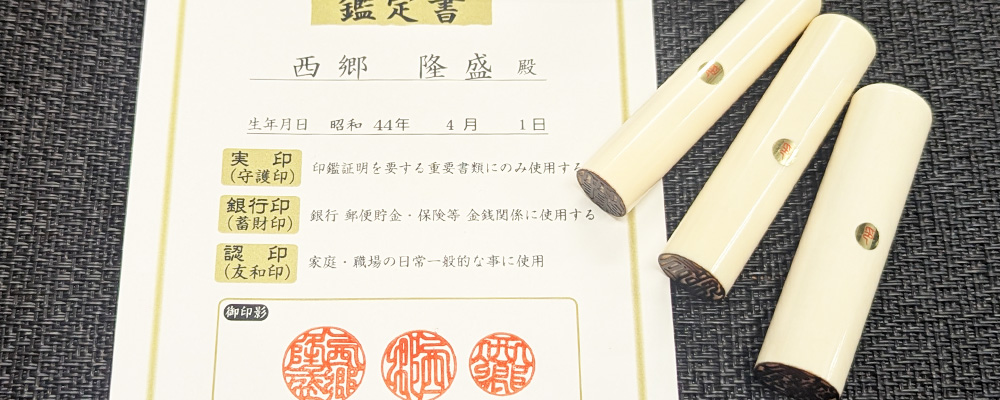 鑑定書
西郷 隆盛 殿
生年月日 昭和 44年 4月 1日
実印
(守護印)
印鑑証明を要する重要書類にのみ使用する
銀行印
(蓄財印)
銀行 郵便貯金・保険等 金銭関係に使用する
認印
(友和印)
家庭・職場の日常一般的な事に使用
御印影